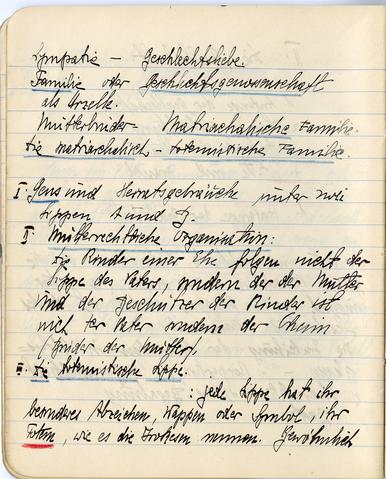 Sympatie – Geschlechtsliebe.
Familie oder Geschlechtsgenossenschaft
als Urzelle.
Mutterbruder- Matriarchalische Familie.
Die matriarchalisch-totemistische Familie.
I Gens und Heiratsgebräuche unter zwei
Sippen A und B.
II Mutterrechtliche Organisation:
Die Kinder einer Ehe folgen nicht der
Sippe des Vaters, sondern der der Mutter
und der Beschützer der Kinder ist
nicht der Vater sondern der Oheim
(Bruder der Mutter).
III Die totemistische Sippe.
: jede Sippe hat ihr
besonderes Abzeichen, Wappen oder Symbol, ihr
Totem, wie es die Irokesen nennen. Gewöhnlich